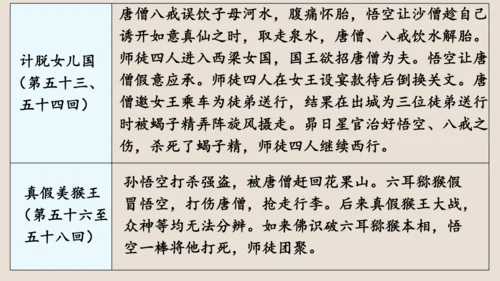 计脱女儿国
（第五十三、
五十四回）
唐僧八戒误饮子母河水，腹痛怀胎，悟空让沙僧趁自己
诱开如意真仙之时，取走泉水，唐僧、八戒饮水解胎。
师徒四人进入西梁女国，国王欲招唐僧为夫。悟空让唐
僧假意应承。师徒四人在女王设宴款待后倒换关文。唐
僧邀女王乘车为徒弟送行，结果在出城为三位徒弟送行
时被蝎子精弄阵旋风摄走。昴日星官治好悟空、八戒之
伤，杀死了蝎子精，师徒四人继续西行。
真假美猴王
（第五十六至
五十八回）
孙悟空打杀强盗，被唐僧赶回花果山。六耳猕猴假
冒悟空，打伤唐僧，抢走行李。后来真假猴王大战，
众神等均无法分辨。如来佛识破六耳猕猴本相，悟
空一棒将他打死，师徒团聚。